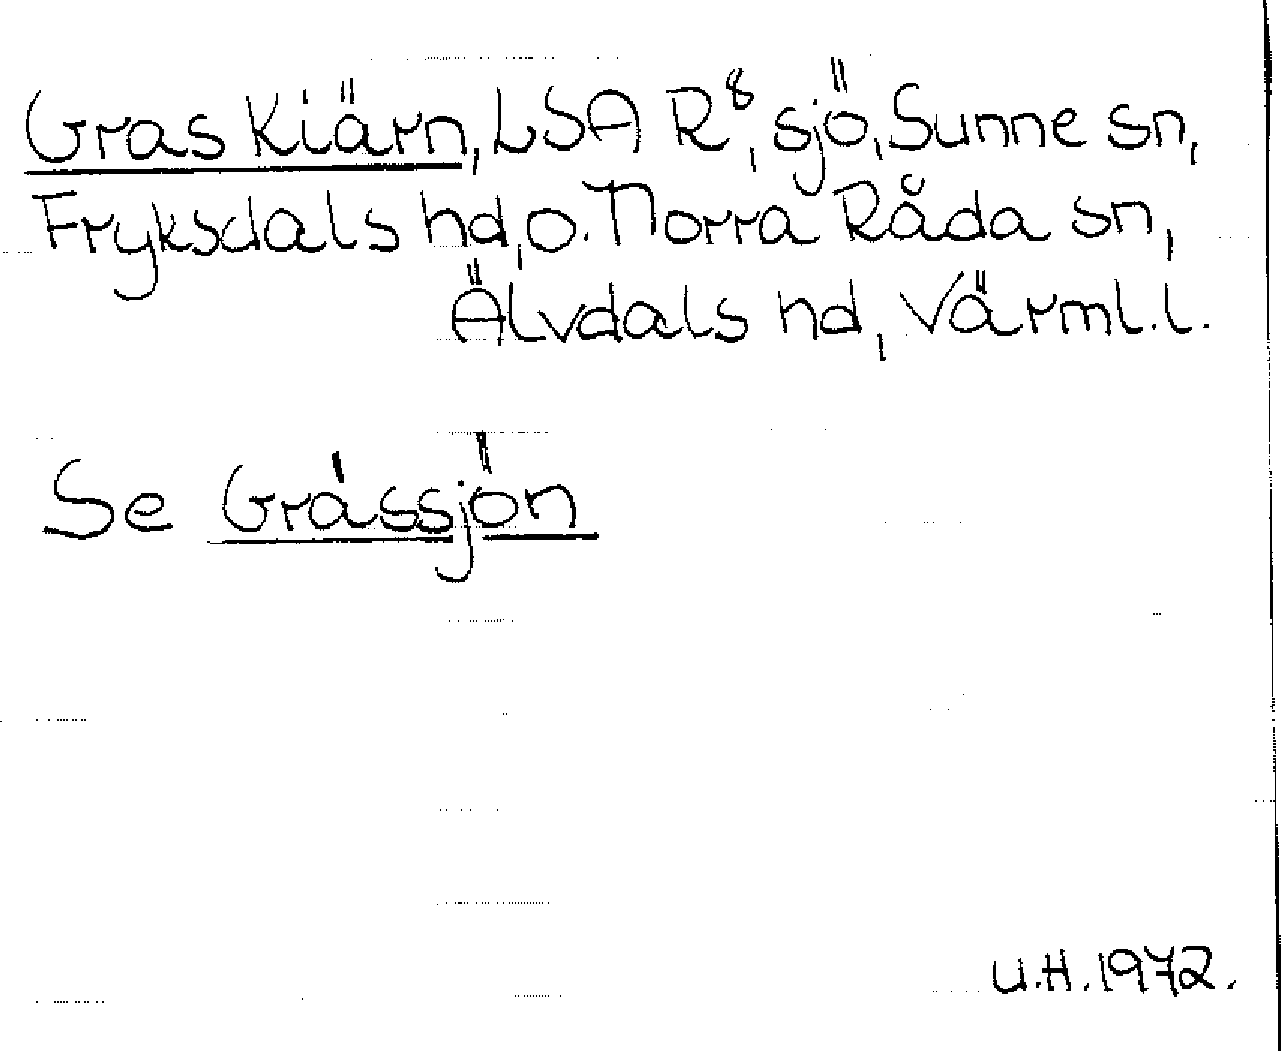 Gras Kiärn, LSA R⁸, sjö, Sunne sn,
Fryksdals hd, o. Norra Råda sn,
Älvdals hd, Värml.l.
Se Grässjön
U.H. 1972.